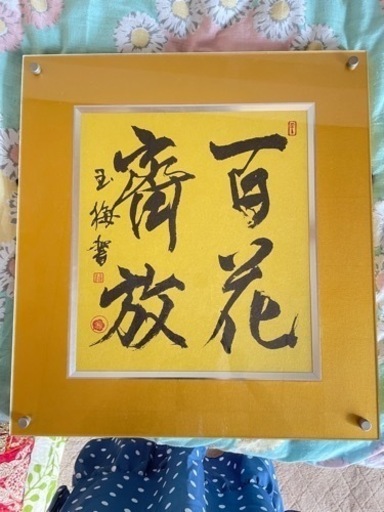 百花
齊放
玉梅書